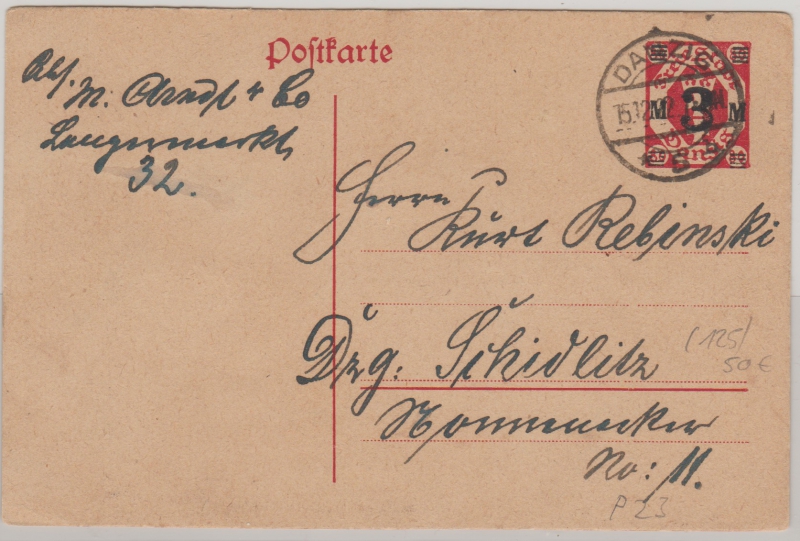 Postkarte
Abs. M. Arndt & Co
Langermarkt
32.
DANZIG
15.12.
M 3 M
* 5
Herrn
Kurt Rebinski
Dzg. Schidlitz
Nonnenacker
No: 11.
(125)
50 €
P 23